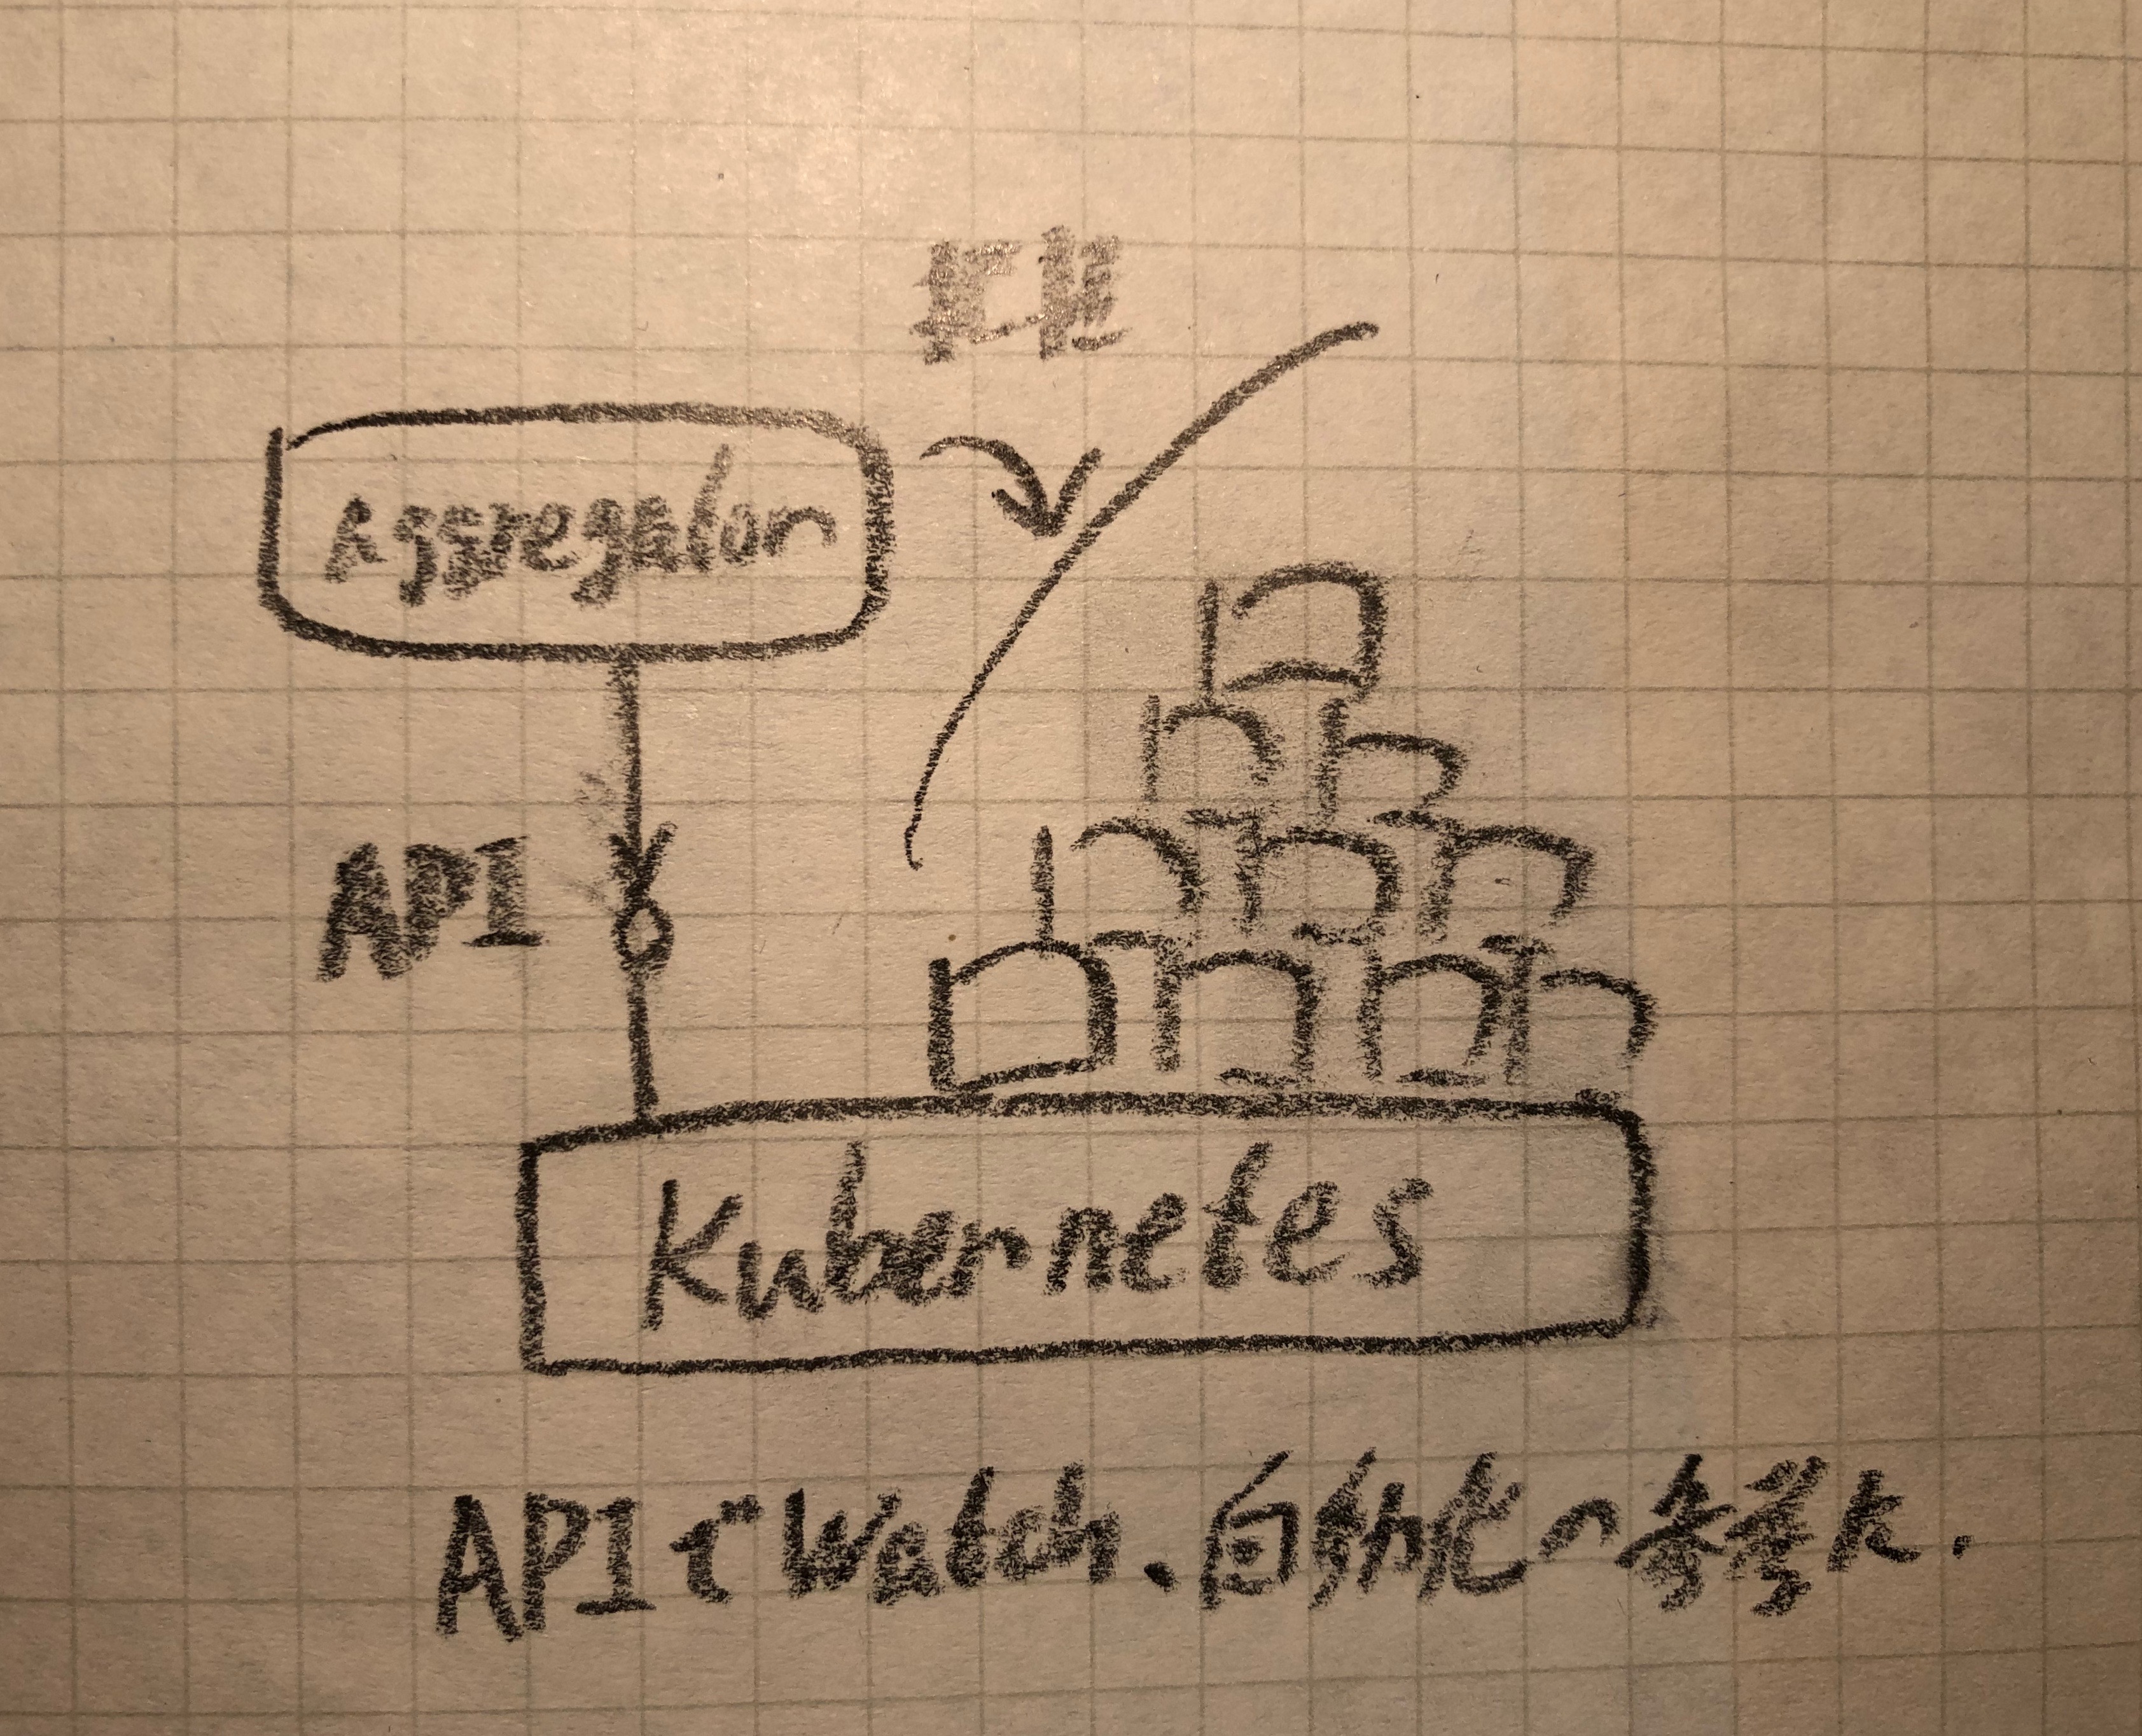 Aggregator
API
Kubernetes
APIでWatch、自動化への参考に.